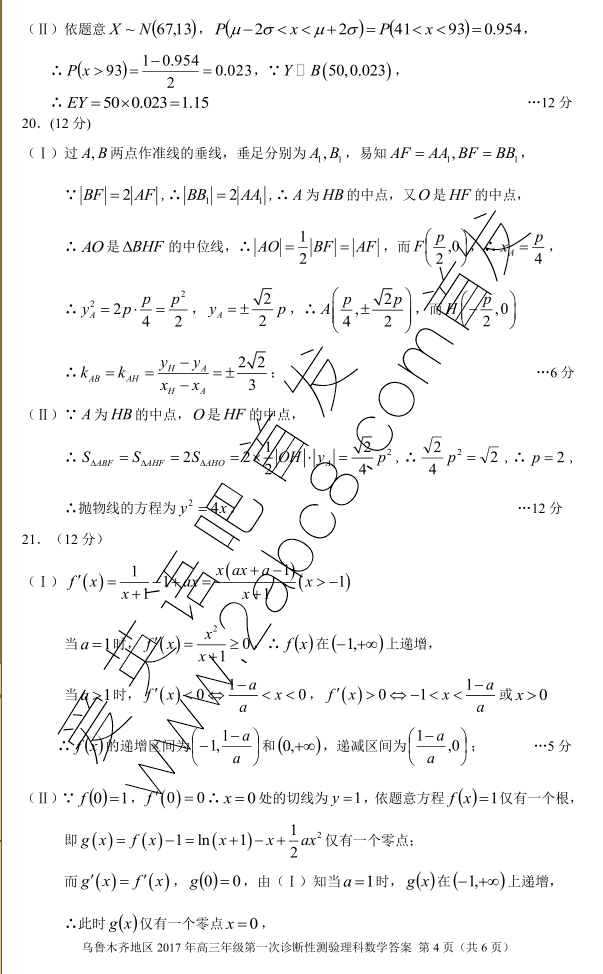 (Ⅱ)依题意 X ~ N(67,13)，P(μ−2σ<x<μ+2σ)=P(41<x<93)=0.954，
∴ P(x>93)=(1−0.954)/2=0.023，∵ Y □ B(50,0.023)，
∴ EY=50×0.023=1.15 …12 分
20．(12 分)
(Ⅰ)过 A,B 两点作准线的垂线，垂足分别为 A₁,B₁，易知 AF=AA₁,BF=BB₁，
∵ |BF|=2|AF|,∴ |BB₁|=2|AA₁|,∴ A 为 HB 的中点，又 O 是 HF 的中点，
∴ AO 是 ΔBHF 的中位线，∴ |AO|=1/2|BF|=|AF|，而 F(p/2,0)，∴ x_A=p/4，
∴ y_A²=2p·p/4=p²/2，y_A=±√2/2 p，∴ A(p/4,±√2p/2)，而 H(−p/2,0)
∴ k_AB=k_AH=(y_H−y_A)/(x_H−x_A)=±2√2/3； …6 分
(Ⅱ)∵ A 为 HB 的中点，O 是 HF 的中点，
∴ S_ΔABF=S_ΔAHF=2S_ΔAHO=2×1/2|OH|·|y_A|=√2/4 p²，∴ √2/4 p²=√2，∴ p=2，
∴抛物线的方程为 y²=4x． …12 分
21．（12 分）
(Ⅰ) f′(x)=1/(x+1)−1+ax=x(ax+a−1)/(x+1)(x>−1)
当 a=1 时，f′(x)=x²/(x+1)≥0，∴ f(x) 在 (−1,+∞) 上递增，
当 a>1 时，f′(x)<0⇔(1−a)/a<x<0，f′(x)>0⇔−1<x<(1−a)/a 或 x>0
∴ f(x) 的递增区间为 (−1,(1−a)/a) 和 (0,+∞)，递减区间为 ((1−a)/a,0)； …5 分
(Ⅱ)∵ f(0)=1，f′(0)=0∴ x=0 处的切线为 y=1，依题意方程 f(x)=1 仅有一个根，
即 g(x)=f(x)−1=ln(x+1)−x+1/2 ax² 仅有一个零点；
而 g′(x)=f′(x)，g(0)=0，由（Ⅰ）知当 a=1 时，g(x) 在 (−1,+∞) 上递增，
∴此时 g(x) 仅有一个零点 x=0，
乌鲁木齐地区 2017 年高三年级第一次诊断性测验理科数学答案 第 4 页（共 6 页）
www.2abc8.com